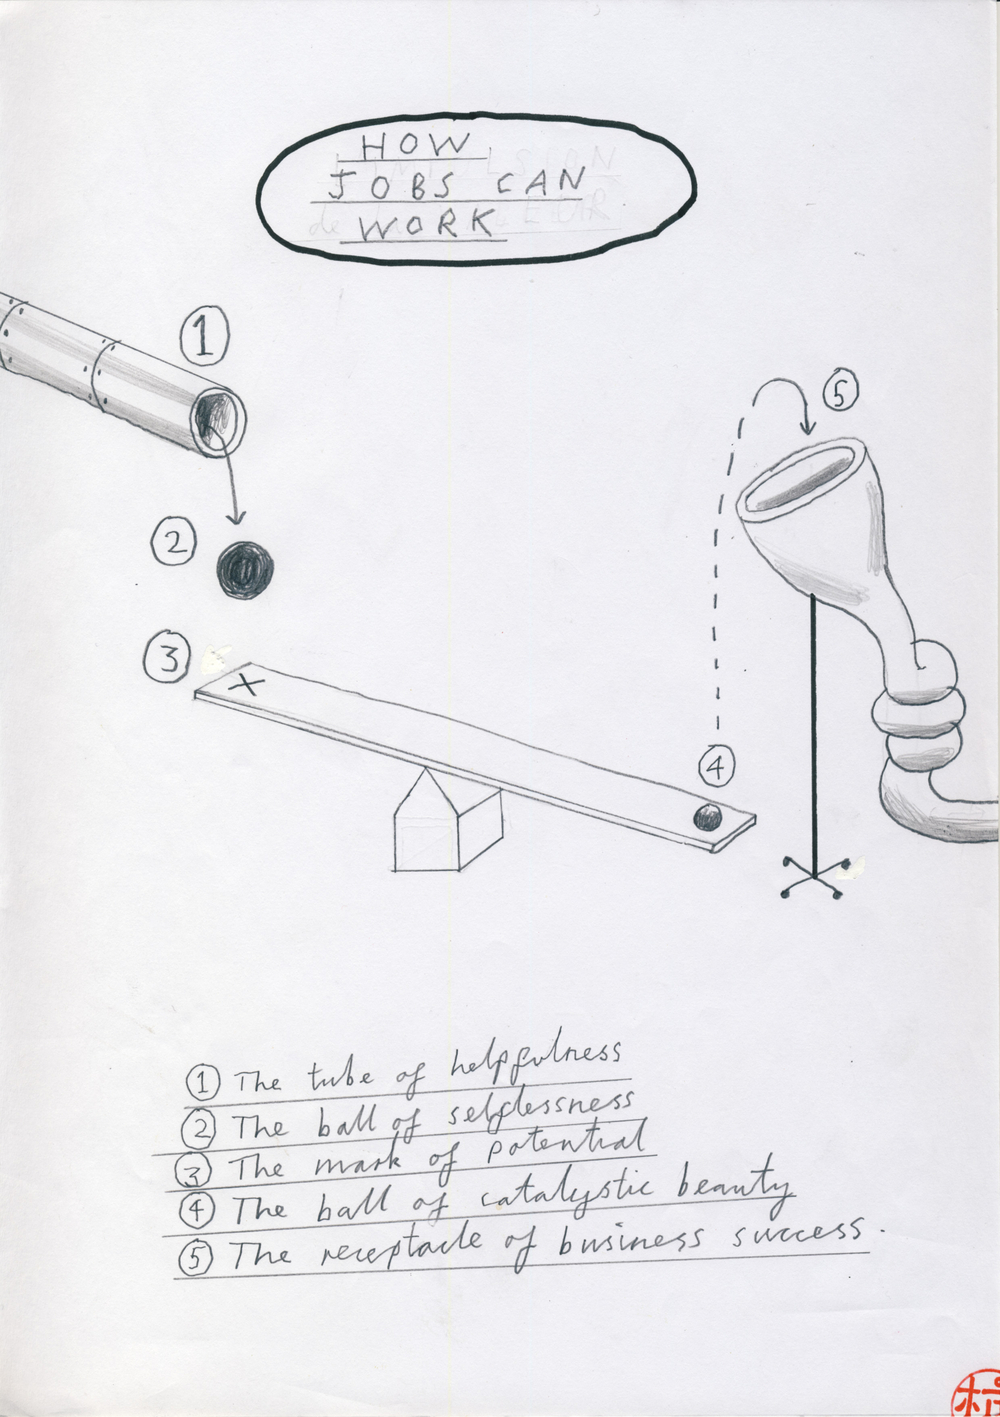 HOW
JOBS CAN
WORK
1
5
2
3
4
1 The tube of helpfulness
2 The ball of selflessness
3 The mark of potential
4 The ball of catalystic beauty
5 The receptacle of business success.